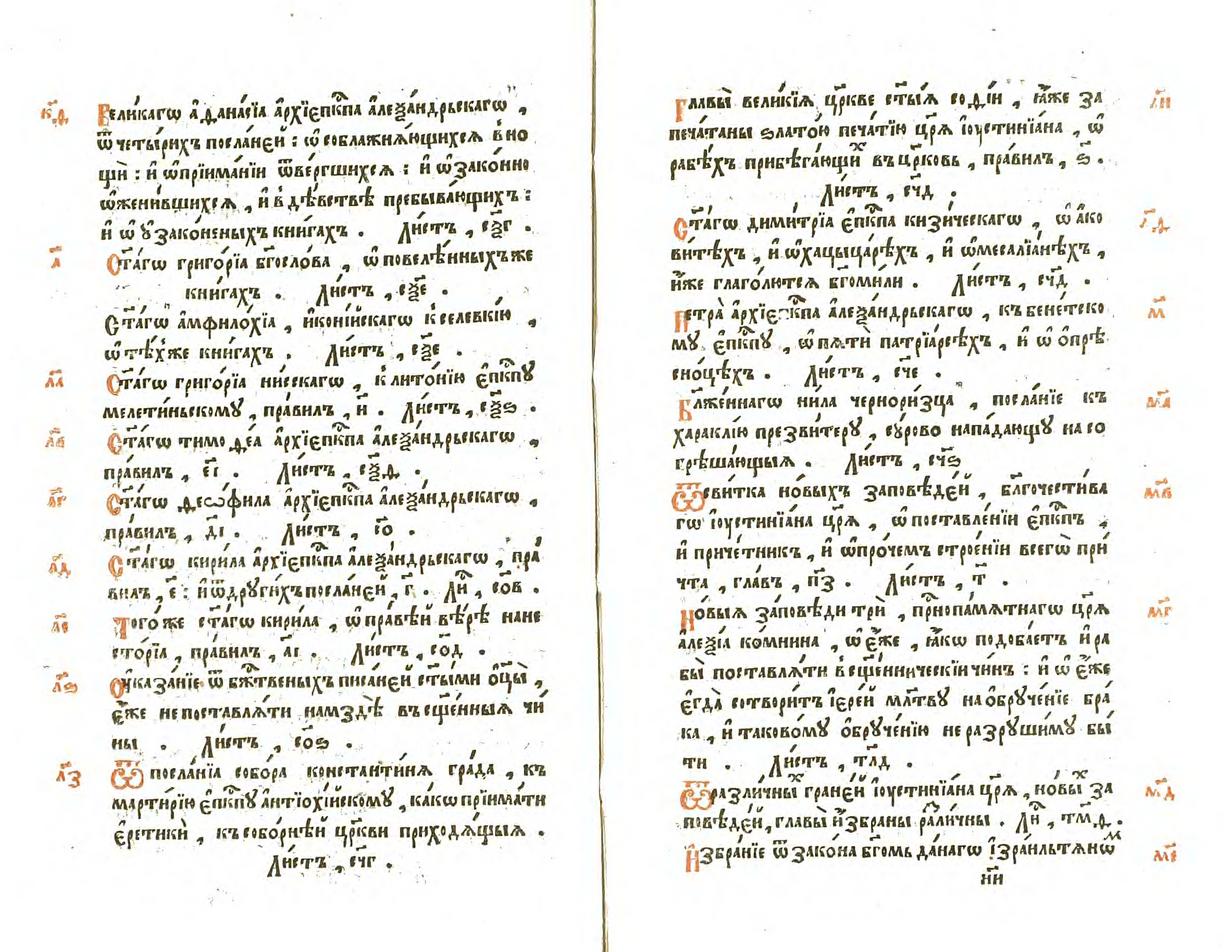 к҃ѳ Вели́кагѡ а҆ѳана́сїа а҆рхїепⷭ҇кпа а҆леѯа́ндрьскагѡ ,
ѿ четы́рихъ посла́нєй : ѡ҆ соблажня́ющихся в но
щѝ : и҆ ѡ҆ прїима́нїи ѿве́ргшихся : и҆ ѡ҆ зако́нно
ѡ҆жени́вшихся , и҆ в дѣ́вствѣ пребыва́ющихъ :
и҆ ѡ҆ ᲂу҆зако́неныхъ кни́гахъ . Ли́стъ , сѯ҃г .
л҃ Ст҃а́гѡ григо́рїа бг҃осло́ва , ѡ҆ повелѣ́нныхъ же
кни́гахъ . Ли́стъ , сѯ҃е .
Ст҃а́гѡ а҆мфило́хїа , и҆кони́йскагѡ к селевкі́ю ,
ѡ҆ тѣ́хже кни́гахъ . Ли́стъ , сѯ҃е .
л҃а Ст҃а́гѡ григо́рїа ни́сскагѡ , к лито́нїю є҆пⷭ҇кпꙋ
мелети́ньскомꙋ , пра́вилъ , и҃ . Ли́стъ , сѯ҃ѕ .
л҃в Ст҃а́гѡ тимоѳе́а а҆рхїепⷭ҇кпа а҆леѯа́ндрьскагѡ ,
пра́вилъ , е҃і . Ли́стъ , сѯ҃ѳ .
л҃г Ст҃а́гѡ ѳеѡ́фила а҆рхїепⷭ҇кпа а҆леѯа́ндрьскагѡ ,
пра́вилъ , д҃і . Ли́стъ , со҃ .
л҃д Ст҃а́гѡ кири́ла а҆рхїепⷭ҇кпа а҆леѯа́ндрьскагѡ , пра́
вилъ , е҃ : и҆ ѿ дрꙋги́хъ посла́нєй , г҃ . Лиⷭ҇ , со҃в .
л҃е Того́ же ст҃а́гѡ кири́ла , ѡ҆ пра́вѣй вѣ́рѣ на не
сто́рїа , пра́вилъ , а҃і . Ли́стъ , со҃д .
л҃ѕ Оу҆каза́нїе ѿ бжⷭ҇твеныхъ писа́нєй ст҃ы́ми ѻ҆ц҃ы̀ ,
є҆́же не поставля́ти на мздѣ̀ въ сщ҃е́нныя чи́
ны . Ли́стъ , со҃ѕ .
л҃з Ѿ посла́нїа собо́ра константи́ня гра́да , къ
марти́рїю є҆пⷭ҇кпꙋ антїохі́йскомꙋ , ка́кѡ прїима́ти
є҆ретикѝ , къ собо́рнѣй цр҃кви приходя́щыя .
Ли́стъ , сч҃г .
л҃и Главы̀ вели́кїя цр҃кве ст҃ы́я софі́и , ꙗ҆́же за
печа́таны ѕлато́ю печа́тїю цр҃я̀ і҆ꙋстинїа́на , ѡ҆
рабѣ́хъ прибѣга́ющиⷯ въ цр҃ковь , пра́вилъ , ѕ҃ .
Ли́стъ , сч҃д .
л҃ѳ Ст҃а́гѡ дими́трїа є҆пⷭ҇кпа кизи́ческагѡ , ѡ҆ а҆ко
ви́тѣхъ , и҆ ѡ҆ хацыца́рѣхъ , и҆ ѡ҆ месалїа́нѣхъ ,
и҆̀же глаго́лются бг҃оми́ли . Ли́стъ , сч҃д .
м҃ Петра̀ а҆рхїепⷭ҇кпа а҆леѯа́ндрьскагѡ , къ бене́тско
мꙋ̀ є҆пⷭ҇кпꙋ , ѡ҆ пятѝ патрїа́рсѣхъ , и҆ ѡ҆ ѻ҆прѣ
сно́цѣхъ . Ли́стъ , сч҃е .
м҃а Блж҃е́ннагѡ ни́ла чернори́зца , посла́нїе къ
харакли́ю презви́терꙋ , сꙋ́рово напа́дающꙋ на со
грѣша́ющыя . Ли́стъ , сч҃ѕ
м҃в Ѿ сви́тка но́выхъ за́повѣдєй , бл҃гочести́ва
гѡ і҆ꙋстинїа́на цр҃я̀ , ѡ҆ поставле́нїи є҆пⷭ҇кпъ ,
и҆ приче́тникъ , и҆ ѡ҆ про́чемъ строе́нїи всегѡ̀ при́
чта , гла́въ , п҃з . Ли́стъ , т҃ .
м҃г Но́выя за́повѣди трѝ , прⷭ҇нопа́мятнагѡ цр҃я̀
але́ѯїа ко́мнина , ѡ҆ є҆́же , ꙗ҆́кѡ подоба́етъ и҆ ра
бы̀ поставля́ти в сщ҃е́нническїи чи́нъ : и҆ ѡ҆ є҆́же
є҆гда̀ сотвори́тъ і҆ере́й мл҃твꙋ на ѻ҆брꙋче́нїе бра́
ка , и҆ таково́мꙋ ѻ҆брꙋче́нїю не разрꙋши́мꙋ бы́
ти . Ли́стъ , тл҃д .
м҃д Ѿ разли́чныⷯ гра́нєй і҆ꙋстинїа́на цр҃я̀ , но́выⷯ за́
повѣдєй , главы̀ и҆збра́ны разли́чны . Лиⷭ҇ , тм҃ѳ .
м҃е И҆збра́нїе ѿ зако́на бг҃омь да́нагѡ і҆зра́ильтянѡⷨ
ни